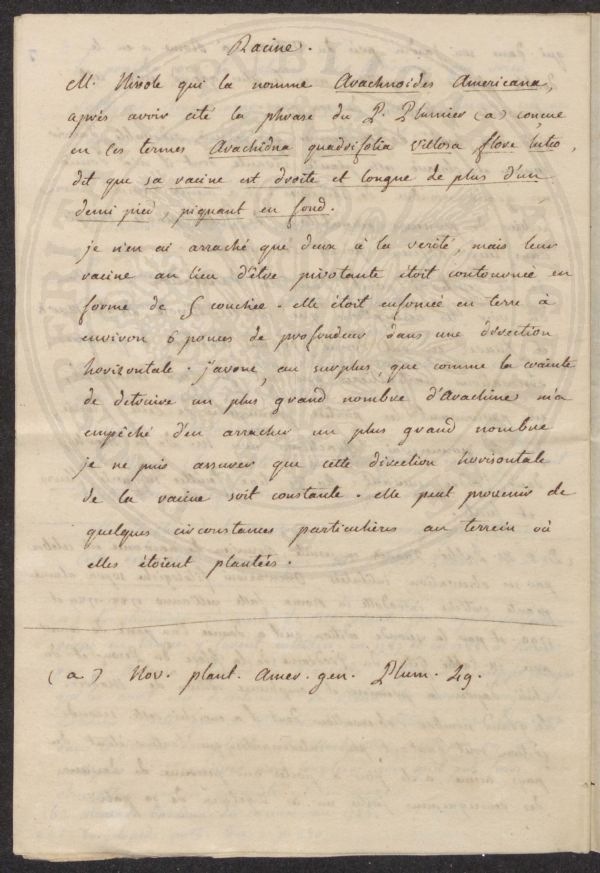 Racine.
M. Nissole qui la nomme Arachnoides Americana,
après avoir cité la phrase du P. Plumier (a) conçue
en ces termes Arachidna quadrifolia villosa flore luteo,
dit que sa racine est droite et longue de plus d'un
demi pied, piquant en fond.
je n'en ai arraché que deux à la verité, mais leur
racine au lieu d'être pivotante étoit contournée en
forme de S couchée. elle étoit enfoncée en terre à
environ 6 pouces de profondeur dans une direction
horizontale. j'avoue, au surplus, que comme la crainte
de detruire un plus grand nombre d'Arachine m'a
empêché d'en arracher un plus grand nombre
je ne puis assurer que cette direction horisontale
de la racine soit constante. elle peut provenir de
quelques circonstances particulières au terrein où
elles étoient plantées.
(a) Nov. plant. Amer. gen. Plum. 49.